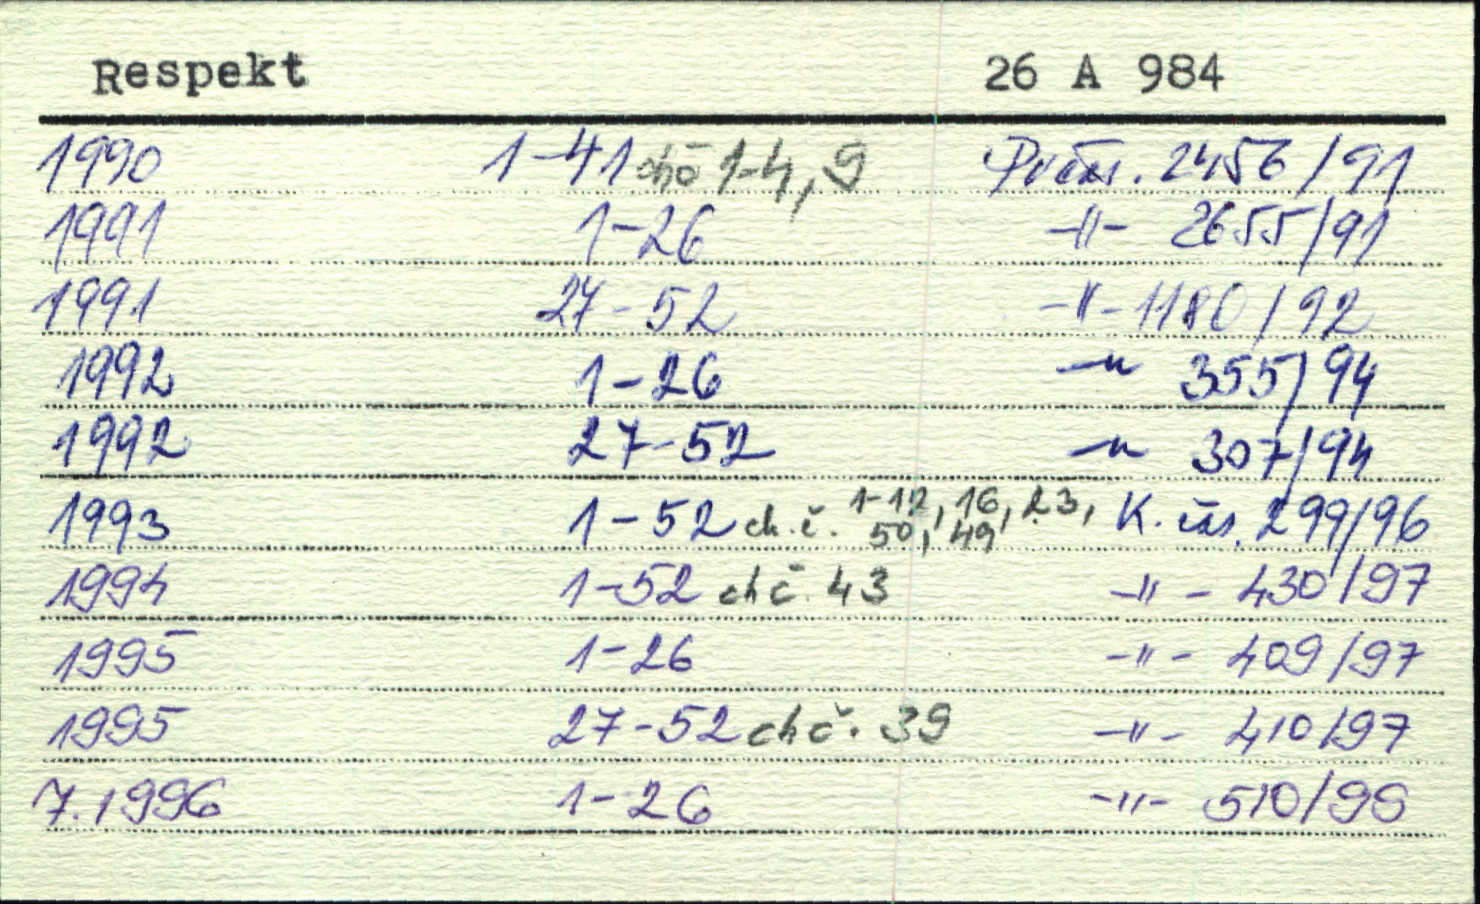 Respekt 26 A 984
1990 1-41 chč 1-4, 9 2456/91
1991 1-26 -"- 2655/91
1991 27-52 -"- 1180/92
1992 1-26 -"- 355/94
1992 27-52 -"- 307/94
1993 1-52 ch.č. 1-12, 16, 23, 50, 49 K. čas. 299/96
1994 1-52 chč. 43 -"- 430/97
1995 1-26 -"- 409/97
1995 27-52 chč. 39 -"- 410/97
7.1996 1-26 -"- 510/98